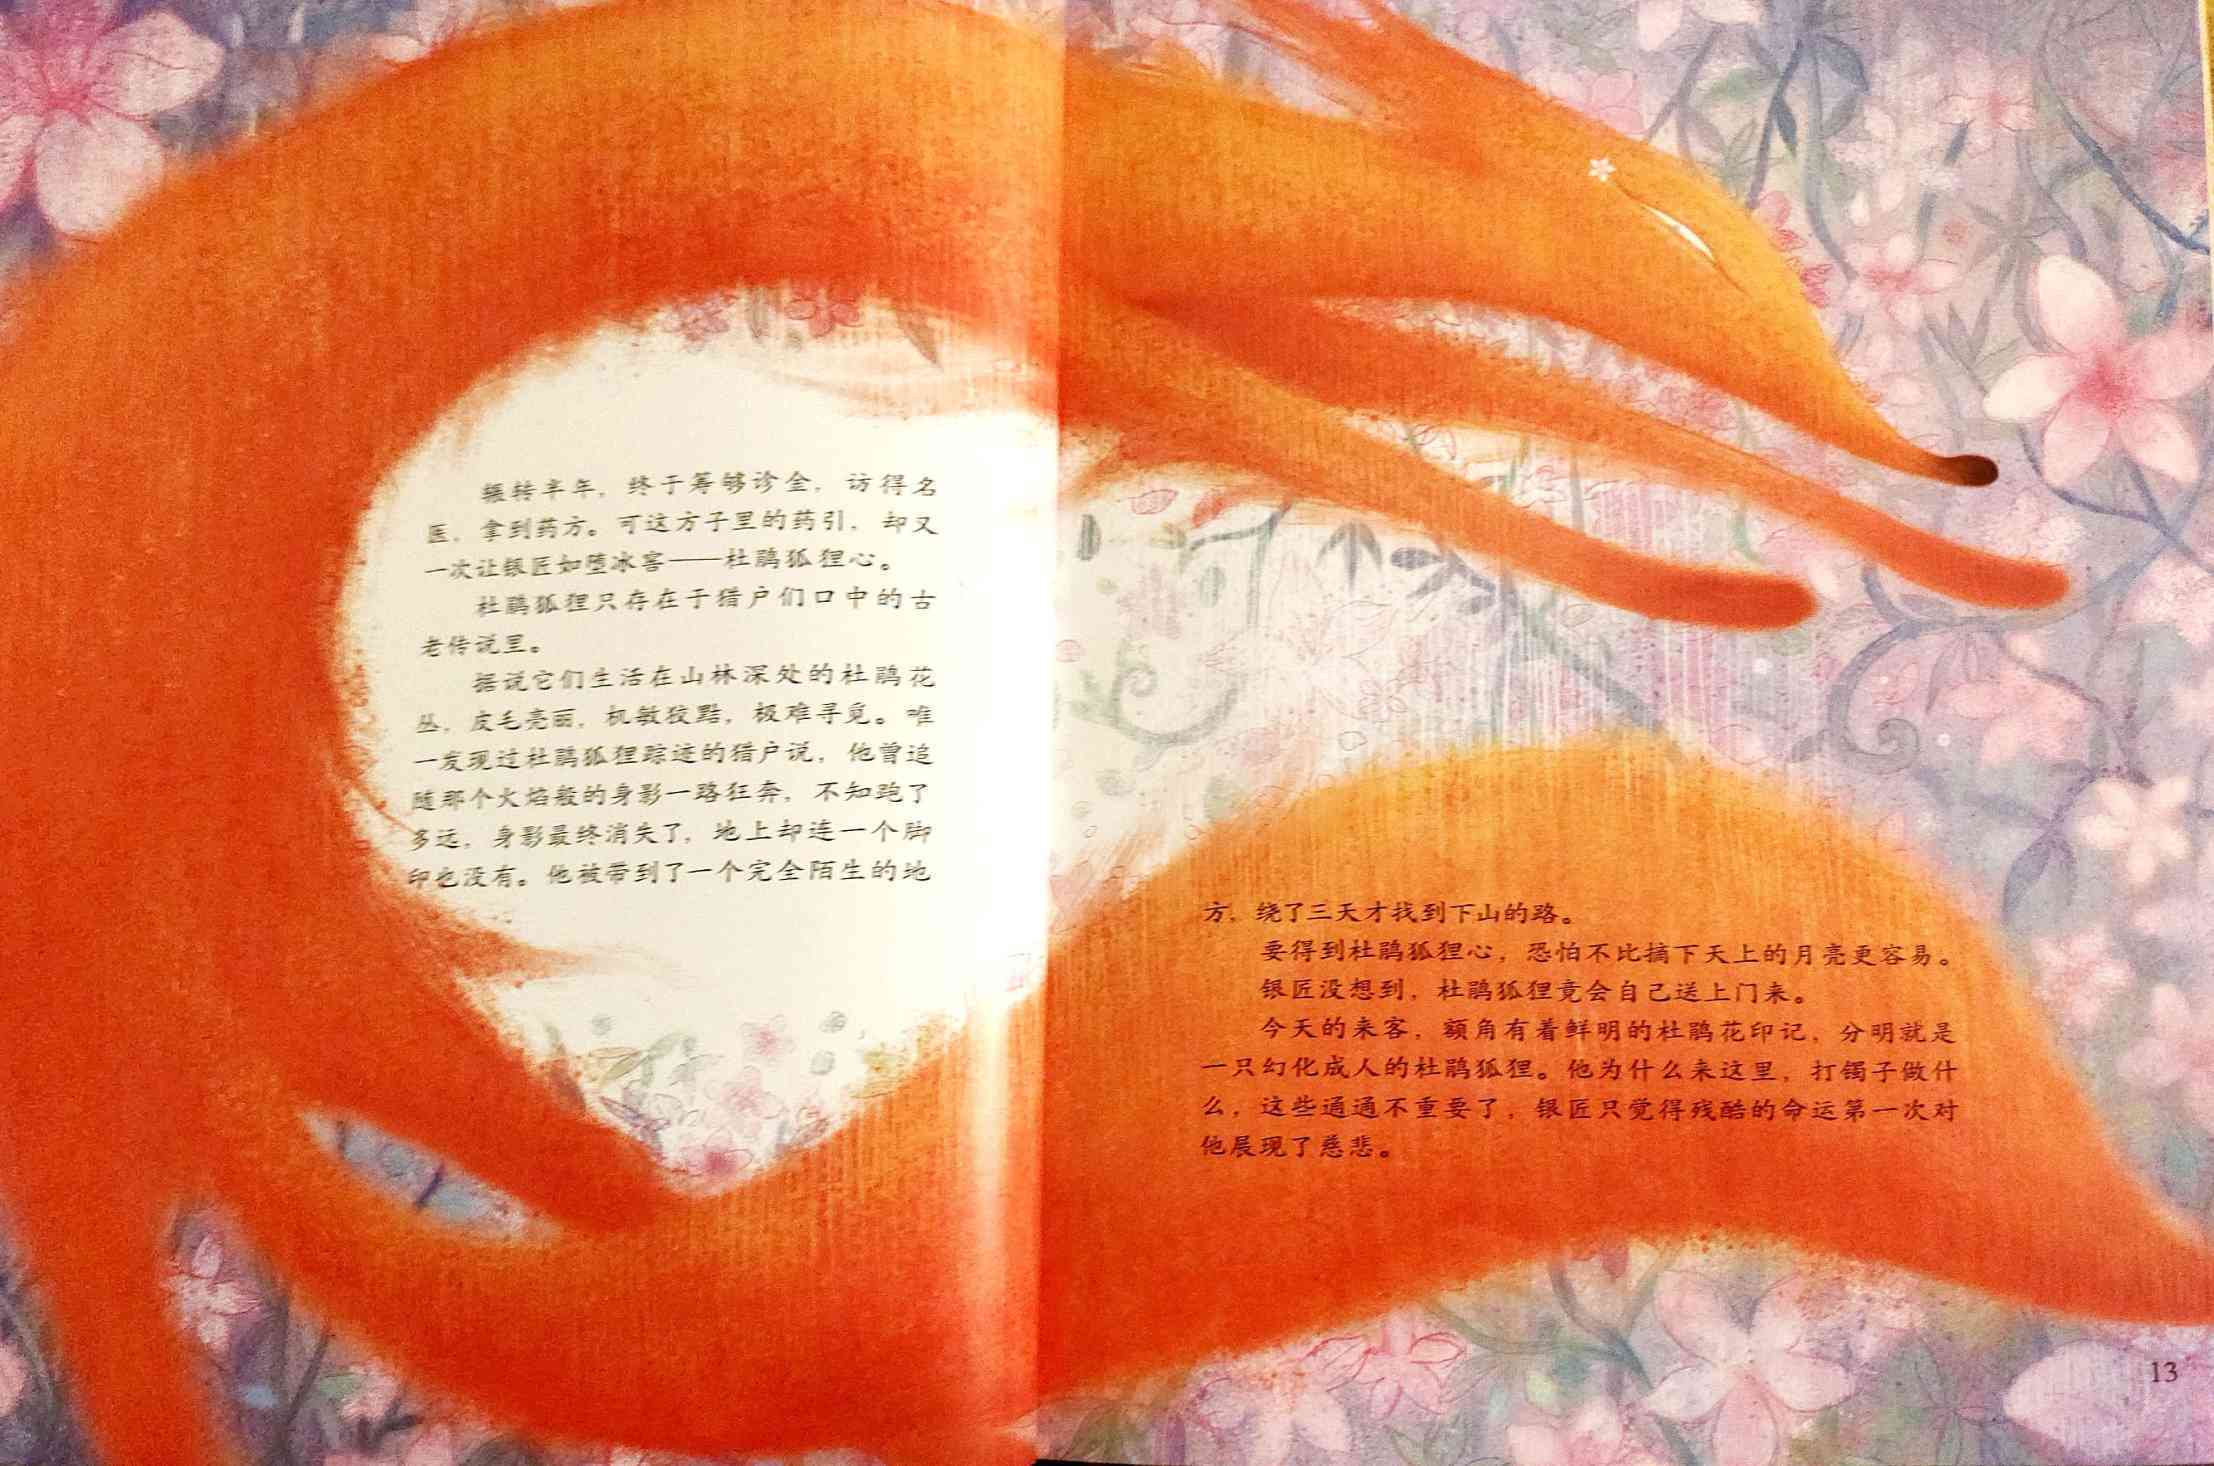 辗转半年，终于筹够诊金，访得名
医，拿到药方。可这方子里的药引，却又
一次让银匠如堕冰窖——杜鹃狐狸心。
杜鹃狐狸只存在于猎户们口中的古
老传说里。
据说它们生活在山林深处的杜鹃花
丛，皮毛亮丽，机敏狡黠，极难寻觅。唯
一发现过杜鹃狐狸踪迹的猎户说，他曾追
随那个火焰般的身影一路狂奔，不知跑了
多远，身影最终消失了，地上却连一个脚
印也没有。他被带到了一个完全陌生的地
方，绕了三天才找到下山的路。
要得到杜鹃狐狸心，恐怕不比摘下天上的月亮更容易。
银匠没想到，杜鹃狐狸竟会自己送上门来。
今天的来客，额角有着鲜明的杜鹃花印记，分明就是
一只幻化成人的杜鹃狐狸。他为什么来这里，打镯子做什
么，这些通通不重要了，银匠只觉得残酷的命运第一次对
他展现了慈悲。
13